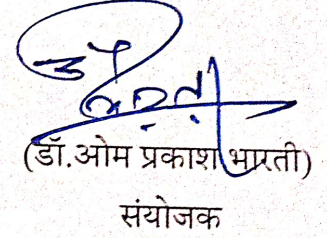 (डॉ.ओम प्रकाश भारती)
संयोजक